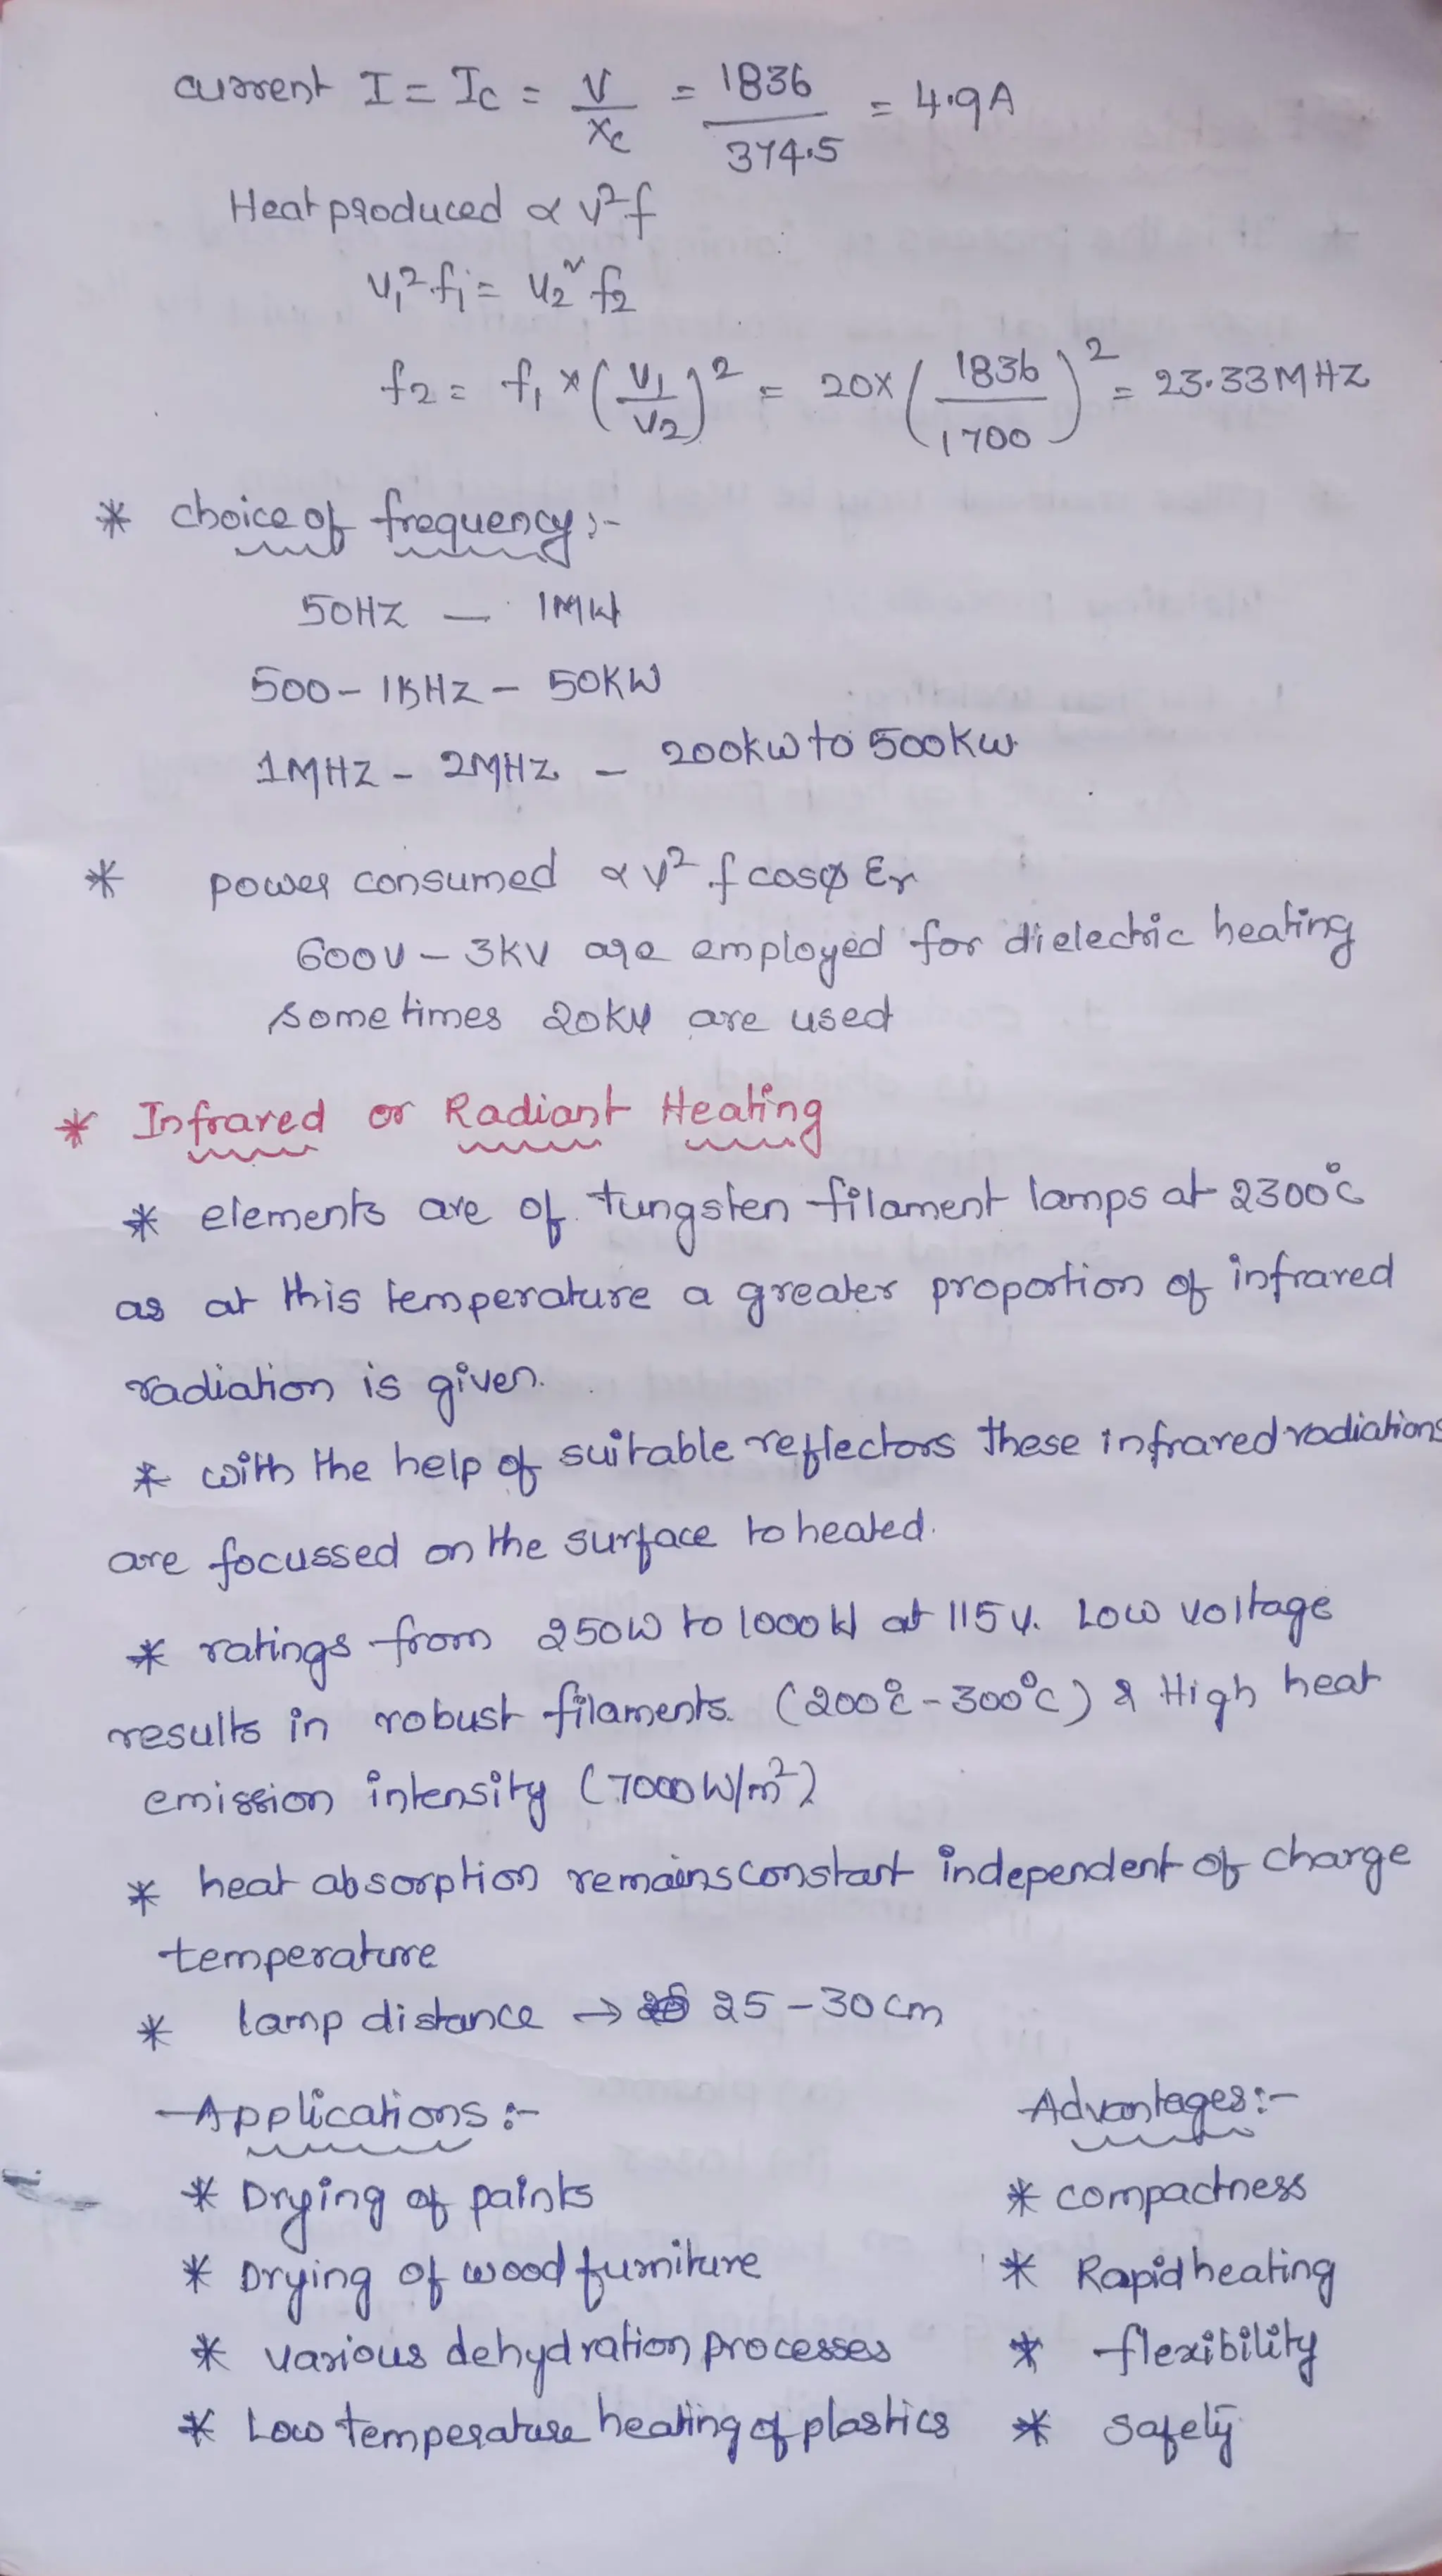 current I = Ic = V/Xc = 1836/374.5 = 4.9A
Heat produced ∝ V²f
V₁²f₁ = V₂²f₂
f₂ = f₁ × (V₁/V₂)² = 20× (1836/1700)² = 23.33MHZ
* choice of frequency :-
50HZ — 1MW
500 - 1KHZ - 50KW
1MHZ - 2MHZ - 200kw to 500kw
* power consumed ∝ V² f cosφ Er
600V - 3KV are employed for dielectric heating
some times 20KV are used
* Infrared or Radiant Heating
* elements are of tungsten filament lamps at 2300°C
as at this temperature a greater proportion of infrared
radiation is given.
* with the help of suitable reflectors these infrared radiations
are focussed on the surface to heated.
* ratings from 250W to 1000W at 115V. Low voltage
results in robust filaments. (200°C - 300°C) & High heat
emission intensity (7000W/m²)
* heat absorption remains constant independent of charge
temperature
* lamp distance → 25 - 30cm
Applications :- Advantages :-
* Drying of paints * compactness
* Drying of wood furniture * Rapid heating
* various dehydration processes * flexibility
* Low temperature heating of plastics * safety